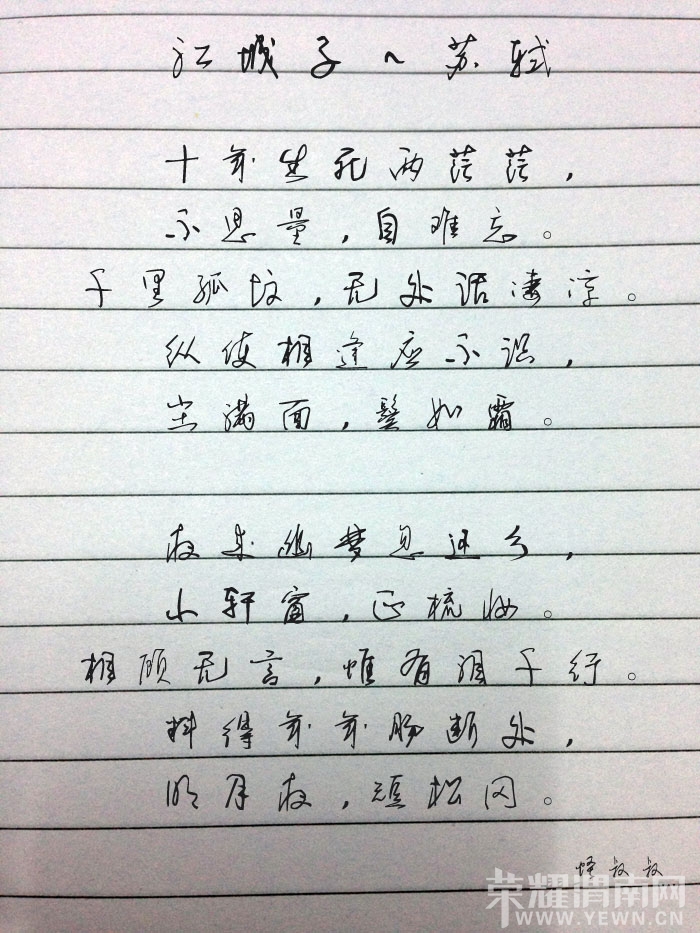 江城子~苏轼
十年生死两茫茫，
不思量，自难忘。
千里孤坟，无处话凄凉。
纵使相逢应不识，
尘满面，鬓如霜。
夜来幽梦忽还乡，
小轩窗，正梳妆。
相顾无言，惟有泪千行。
料得年年肠断处，
明月夜，短松冈。
叔叔
荣耀渭南网
WWW.YEWN.CN